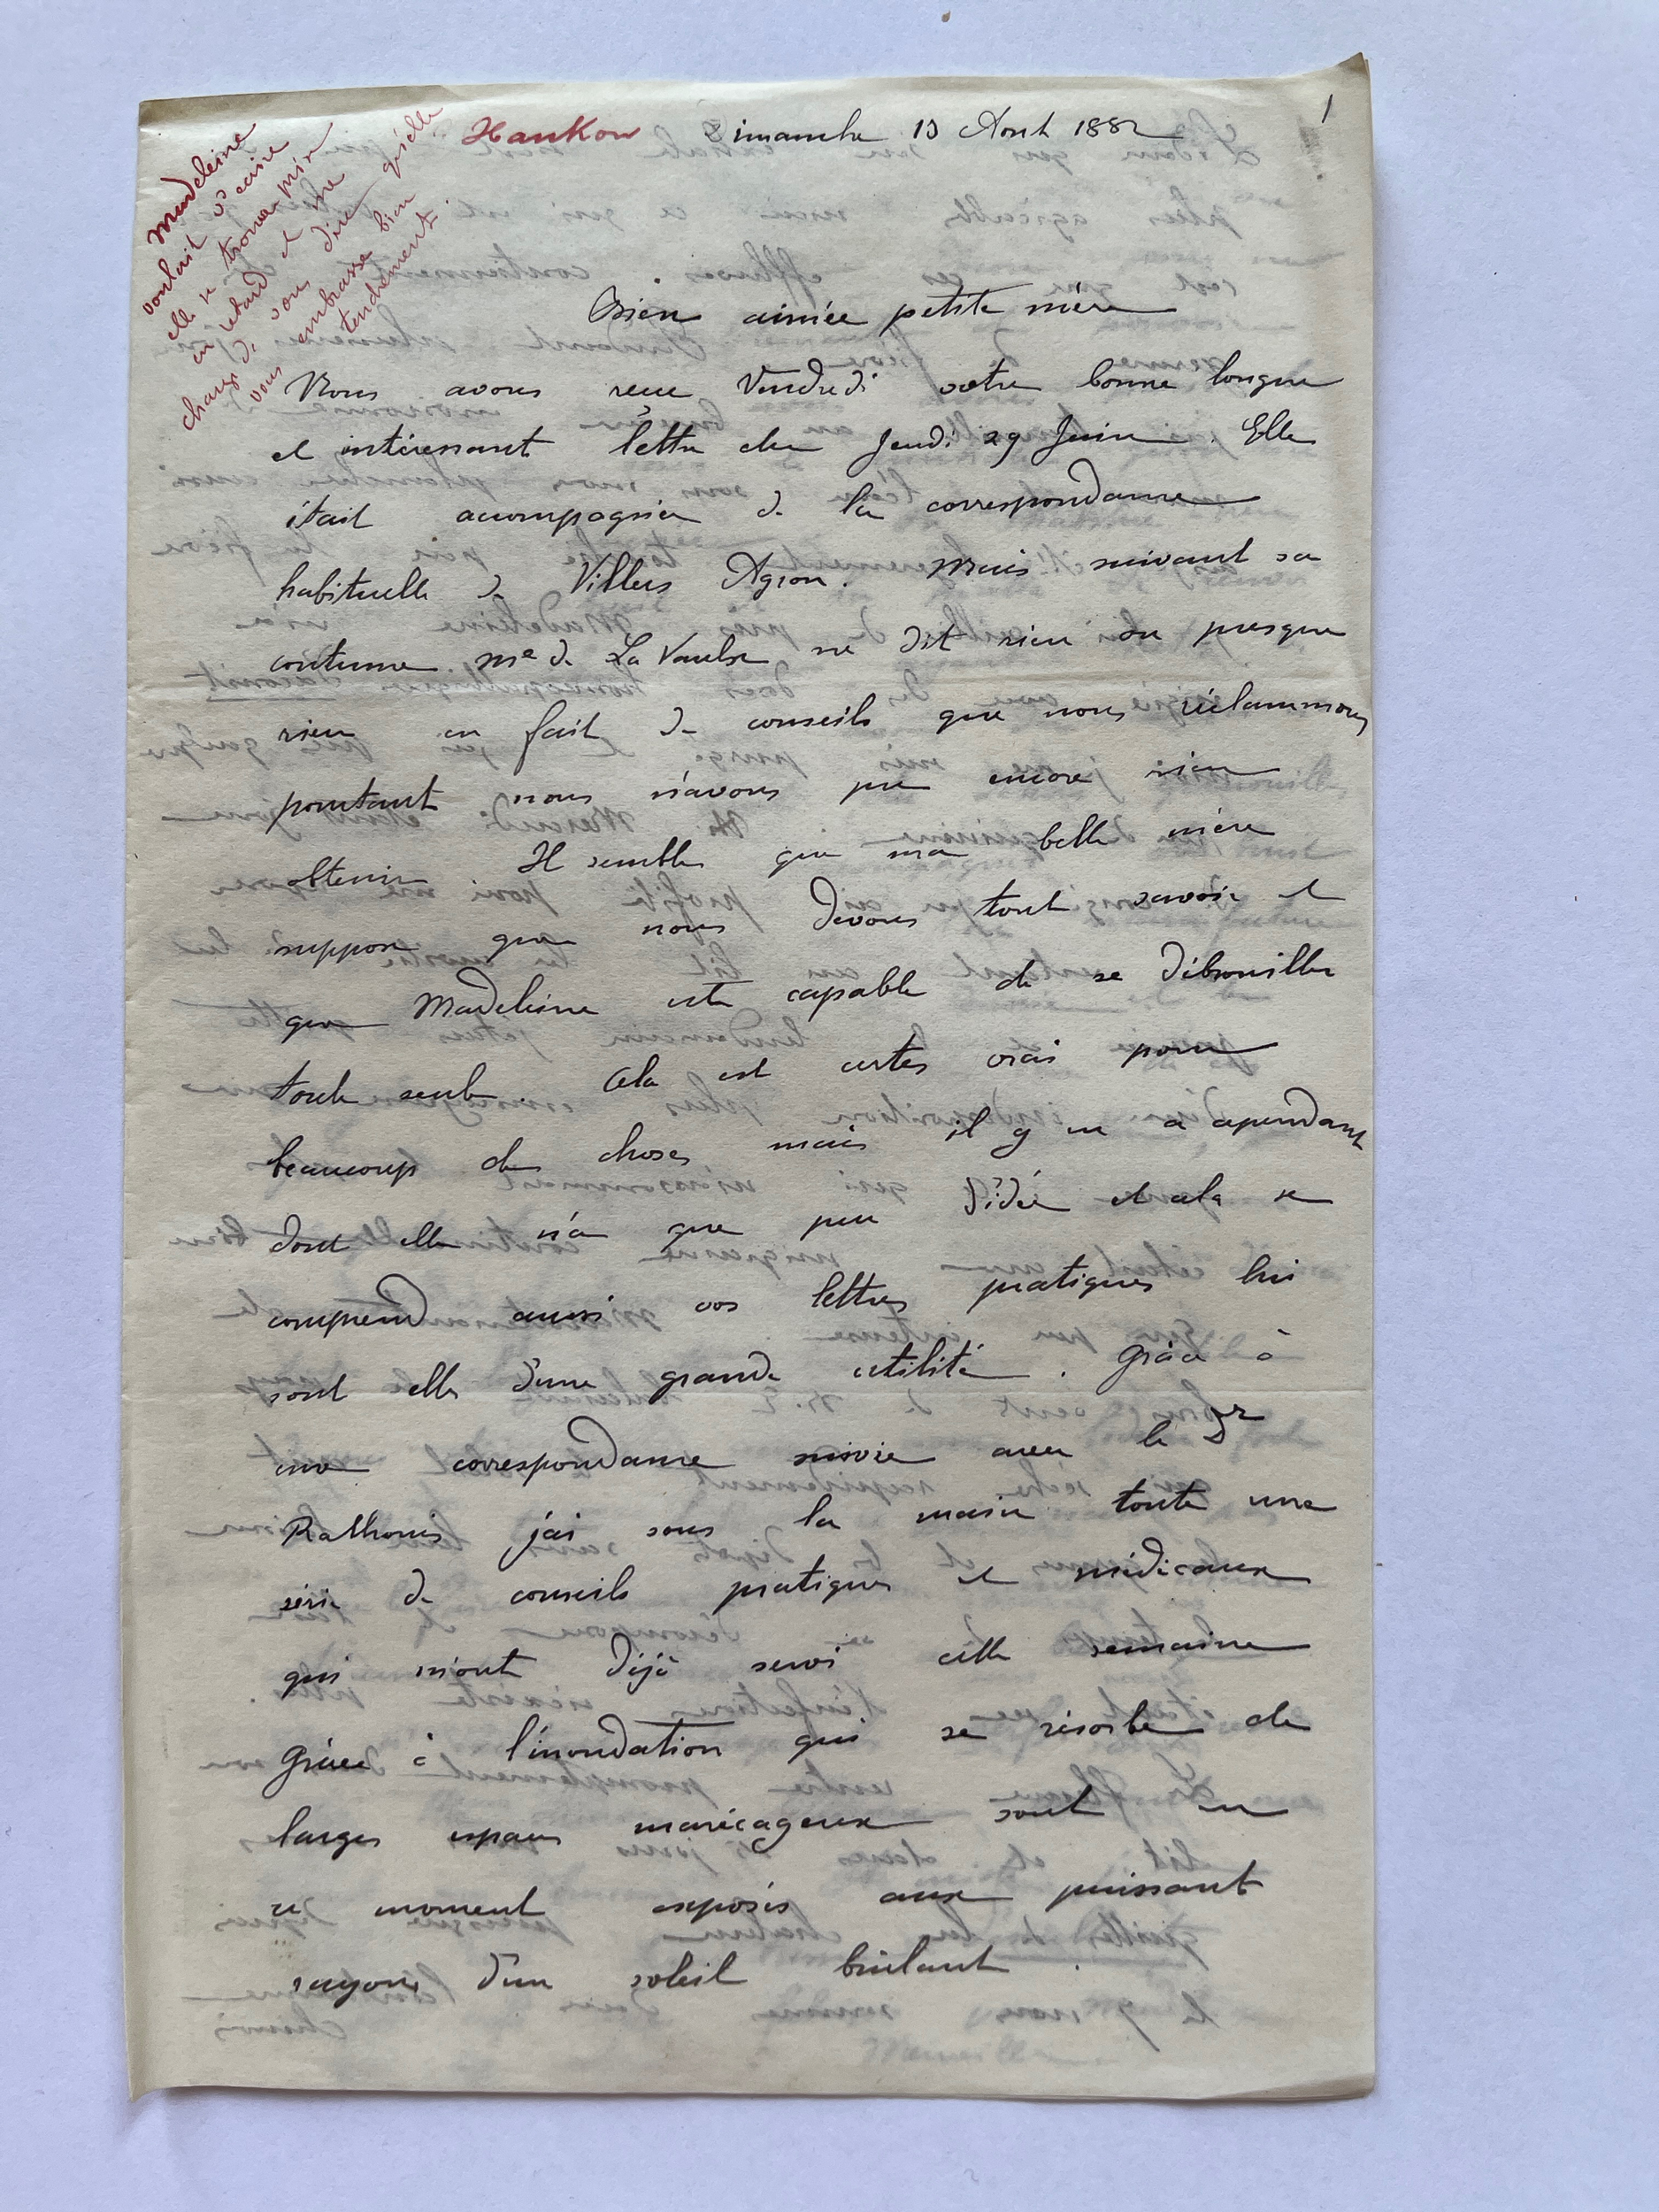 1
Hankow Dimanche 13 Aout 1882
Madeleine
voulait vs ecrire
elle se trouve prise
en retard et me
charge de vous dire qu'elle
vous embrasse bien
tendrement
Bien aimée petite mère
Nous avons reçu Vendredi votre bonne longue
et intéressant lettre du Jeudi 29 Juin. Elle
était accompagnée de la correspondance
habituelle de Villers Agron. Mais suivant sa
coutume Me de La Vaulx ne dit rien ou presque
rien en fait de conseils que nous réclammons
pourtant nous n'avons pu encore rien
obtenir Il semble que ma belle mère
suppose que nous devons tout savoir et
que Madeleine est capable de se débrouiller
toute seule. Cela est certes vrai pour
beaucoup de choses mais il y en a cependant
dont elle n'a que peu d'idée et cela se
comprend aussi vos lettres pratiques lui
sont elles d'une grande utilité. Grâce à
une correspondance suivie avec le Dr
j'ai sous la main toute une
série de conseils pratiques et médicaux
qui m'ont déjà servi cette semaine
Grâce à l'inondation qui se résorbe de
larges espaces marécageux sont en
ce moment exposés aux puissant
rayons d'un soleil brulant.